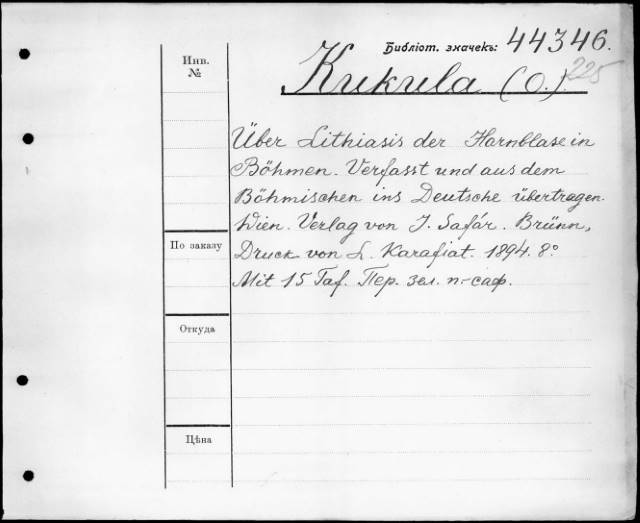 Библіот. значекъ: 44346.
225
Kukula (O.)
Инв.
№
Über Lithiasis der Harnblase in
Böhmen. Verfasst und aus dem
Böhmischen ins Deutsche übertragen.
Wien. Verlag von J. Šafář. Brünn,
По заказу
Druck von L. Karafiat. 1894. 8º
Mit 15 Taf. Пер. зел. п.-саф.
Откуда
Цѣна